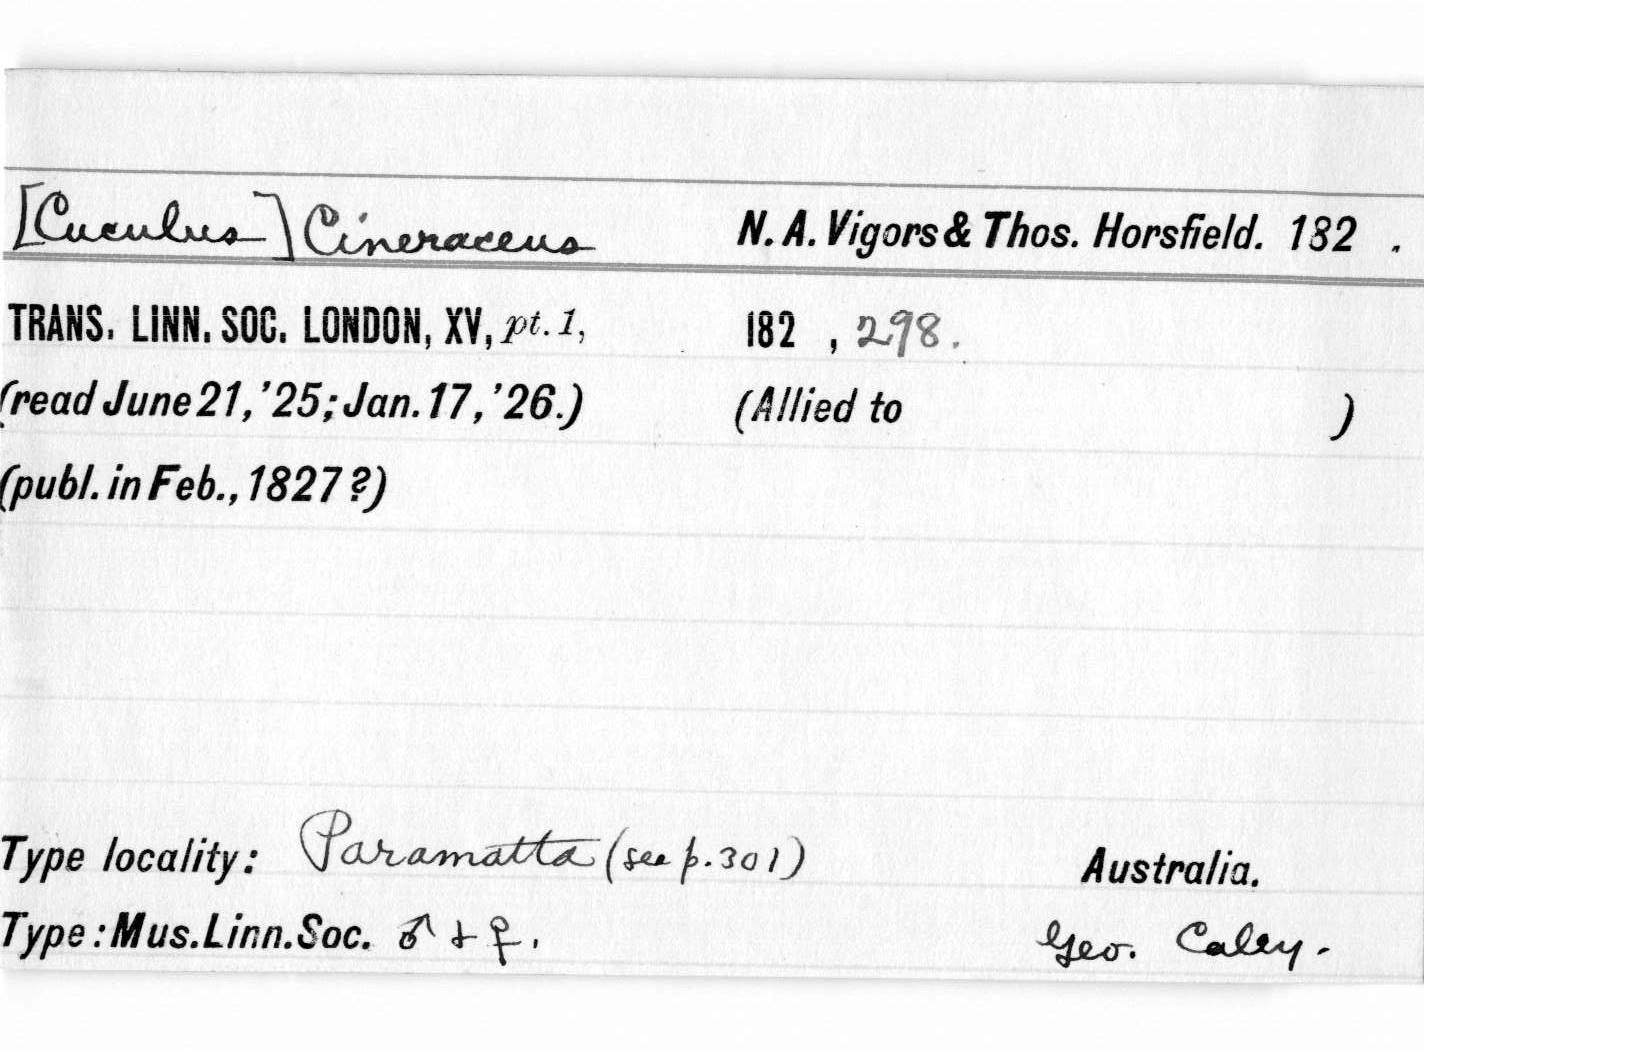 [Cuculus] Cineraceus N. A. Vigors & Thos. Horsfield. 182 .
TRANS. LINN. SOC. LONDON, XV, pt. 1, 182 , 298.
(read June 21, '25; Jan. 17, '26.) (Allied to )
(publ. in Feb., 1827 ?)
Type locality: Paramatta (see p. 301) Australia.
Type : Mus. Linn. Soc. ♂ + ♀. Geo. Caley.